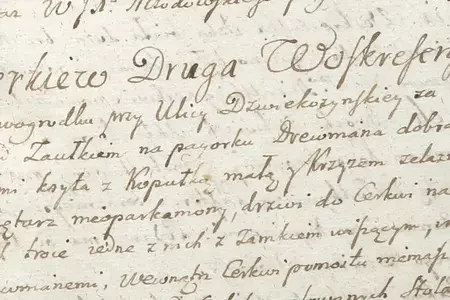 W
erkiew Druga Woskreseny
wogrodku przy Ulicy Dzwiekozynskiey za
Zaułkiem na pagorku Drewniana dobra
mi kryta z Kopułką małą y Krzyżem zelazn
ętarz nieoparkaniony, drzwi do Cerkwi na
troie iedne z nich z Zamkiem wiszącym,
ewnianemi, wewnątrz Cerkwi pomostu niemasz